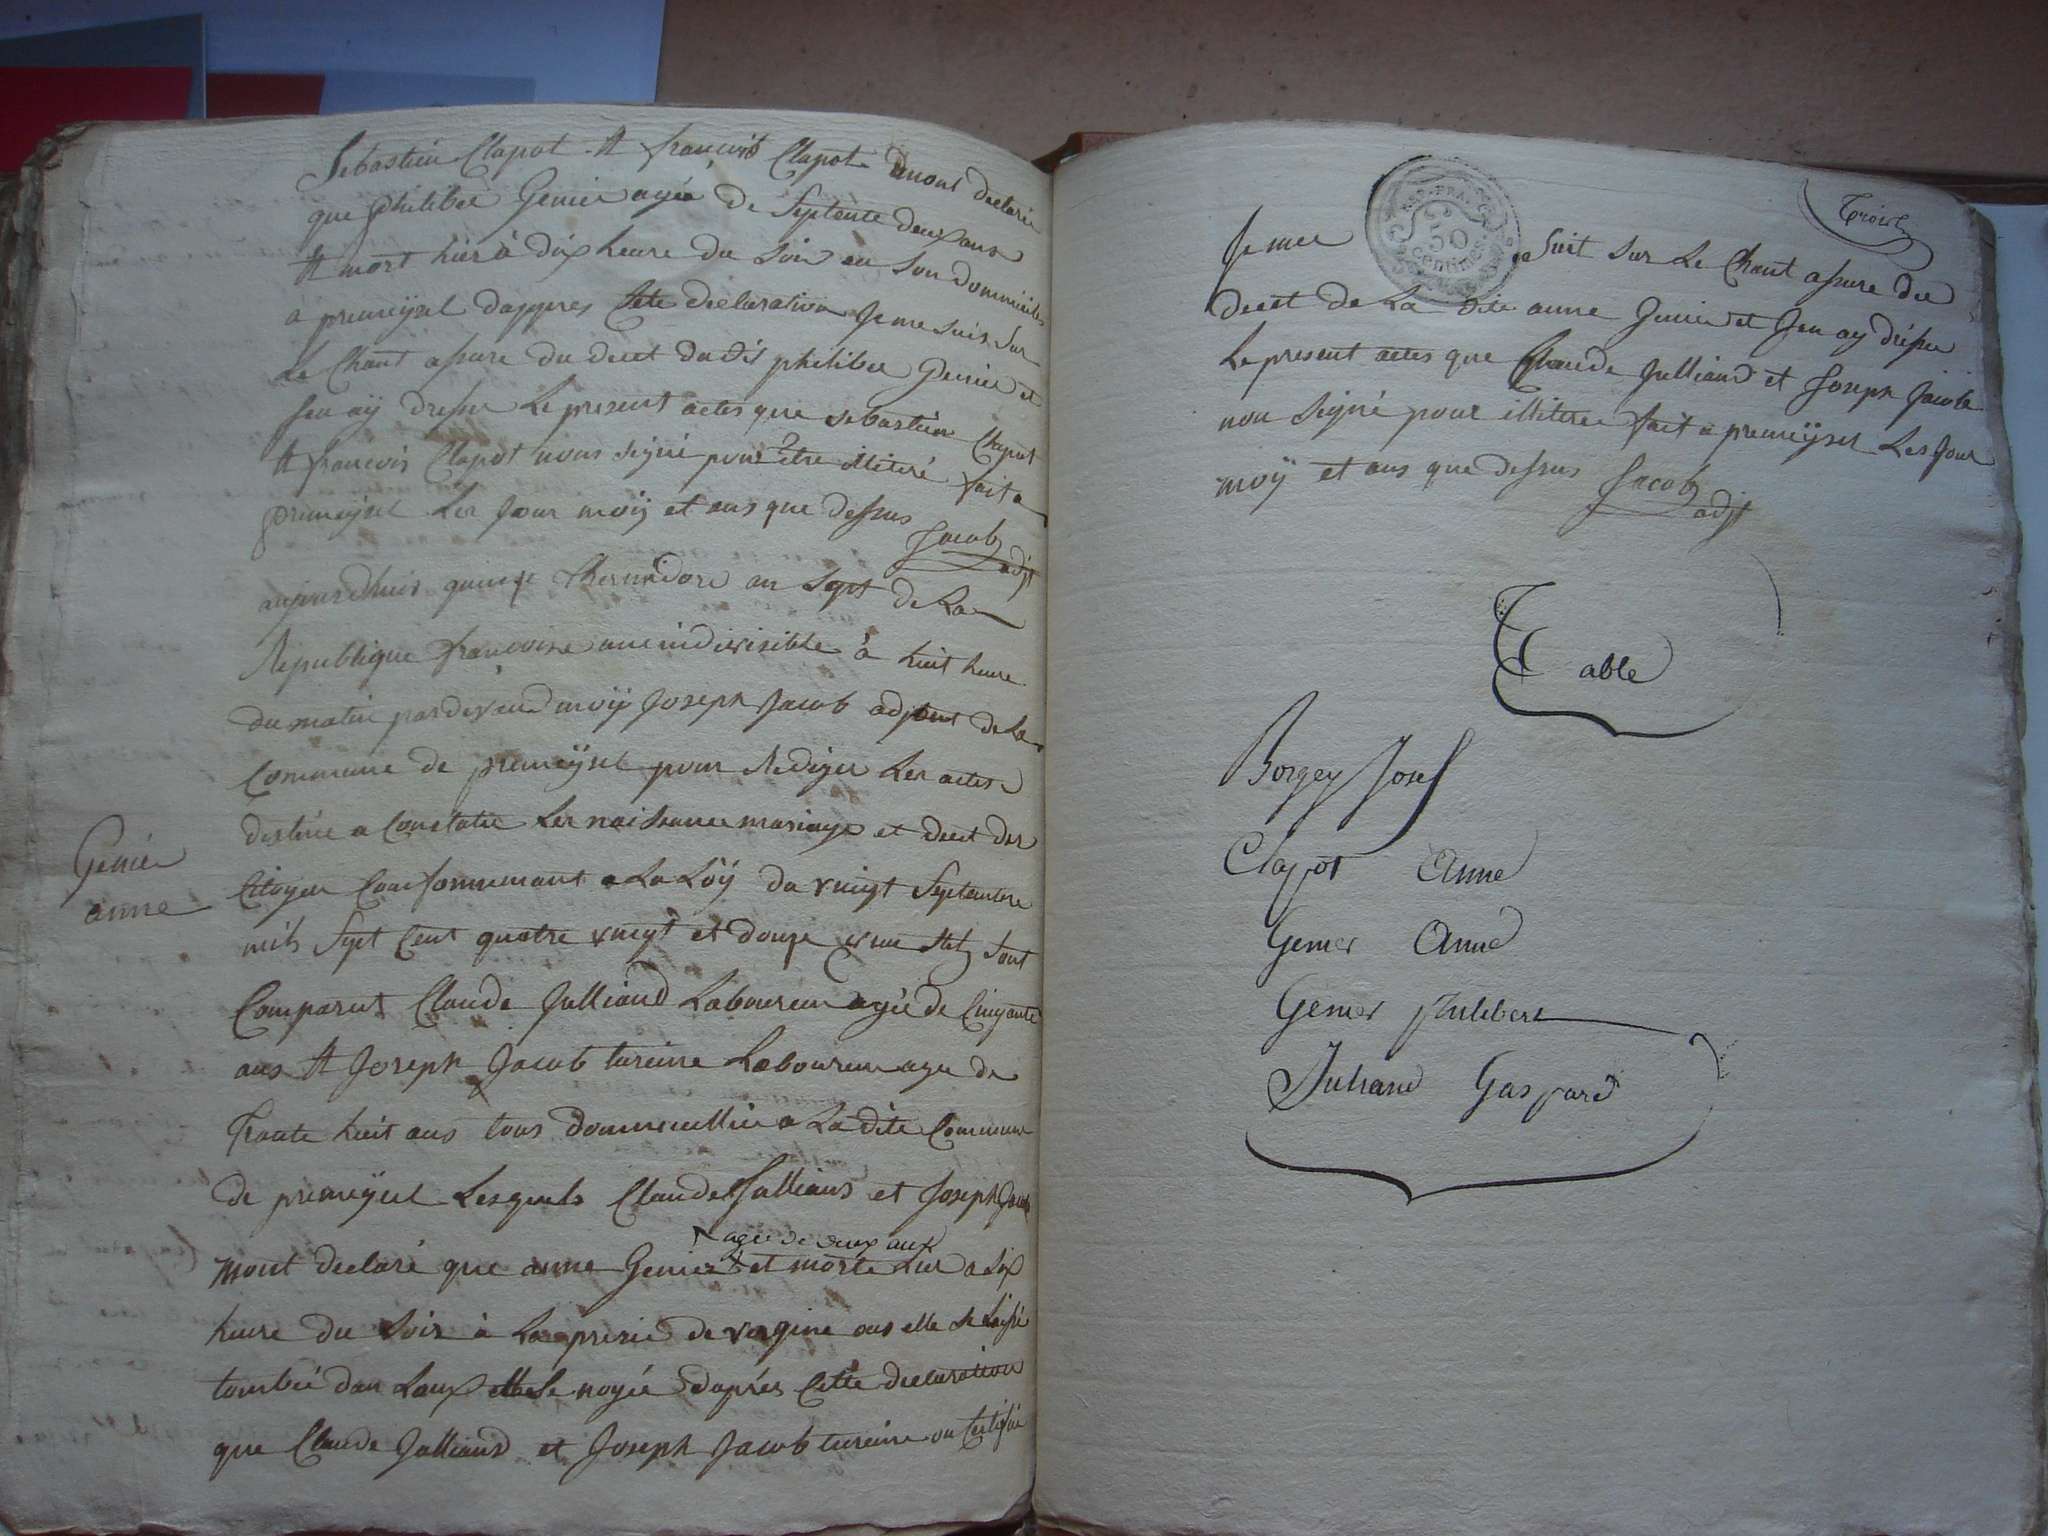 Sebastien Clapot et francois Clapot mont declaré
que philiber Genier agée de septente deux ans
et mort hier à dix heure du soir en son dommicile
à premeysel dappres sete declaration Je me suis sur
le Chant assure du decet du dit philiber Genier et
Jen aÿ dresser le present actes que sebastien Clapot
et francois Clapot nous signé pour être illiteré fait a
premeÿsel les jour moÿ et ans que dessus Jacob
adjt
aujourdhuis quinze thermidore an sept de la
Republique francoise une indivisible à huit heure
du matin pardevend moÿ Joseph Jacob adjoint de la
Commune de premeÿsel pour Rediger les actes
destinée a Constater les naissance mariage et decet des
Genier
anne
Citoyen Conformemant a La Loÿ du vingt Septembre
mils Sept Cent quatre vingt et douze son
Comparut Claude Julliand Laboureur agée de Cinqante
ans et Joseph Jacob tureine Laboureur age de
Trante huit ans tous dommicillier a La dite Commune
de premeÿsel Lesquels Claude Julliand et Joseph Jacob
agée de deux ans
mont declaré que anne Genier et morte hier a six
heure du soir à La prerie de vergine ous elle se Laissé
tombée dan Laux elle se noyée daprés Cette declaration
que Claude Julliand et Joseph Jacob tureine on Certifiée
Troisl
REP. FRA.
50
Centimes
Je me suit sur le Chant assure du
decet de La dite anne Genier et Jen ay dresser
Le present actes que Claude Julliand et Joseph Jacob
non signé pour illiterer fait a premeÿsel Les Jour
moÿ et ans que dessus Jacob
adjt
Table
Borgey Josef
Clapot Anne
Genier Anne
Genier philibert
Juliand Gaspard